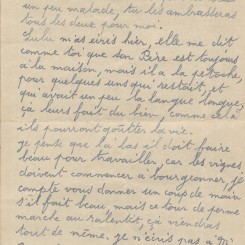 un peu malade, tu les embrasseras
tous les deux pour moi.
Lulu m'as écris hier, elle me dit
comme toi que son Père est toujours
à la maison, mais il a la pétoche,
pour quelques uns qui restait, et
qui avait un peu la langue longue,
ça leurs fait du bien, comme cela
ils pourront goûtter la vie.
je pense que là bas il doit faire
beau pour travailler, car les vignes
doivent commencer à bourgeonner, je
compte vous donner un coup de main
s'il fait beau, mais ce tour de ferme
marche au ralentit, ça viendras
tout de même. je n'écris pas à